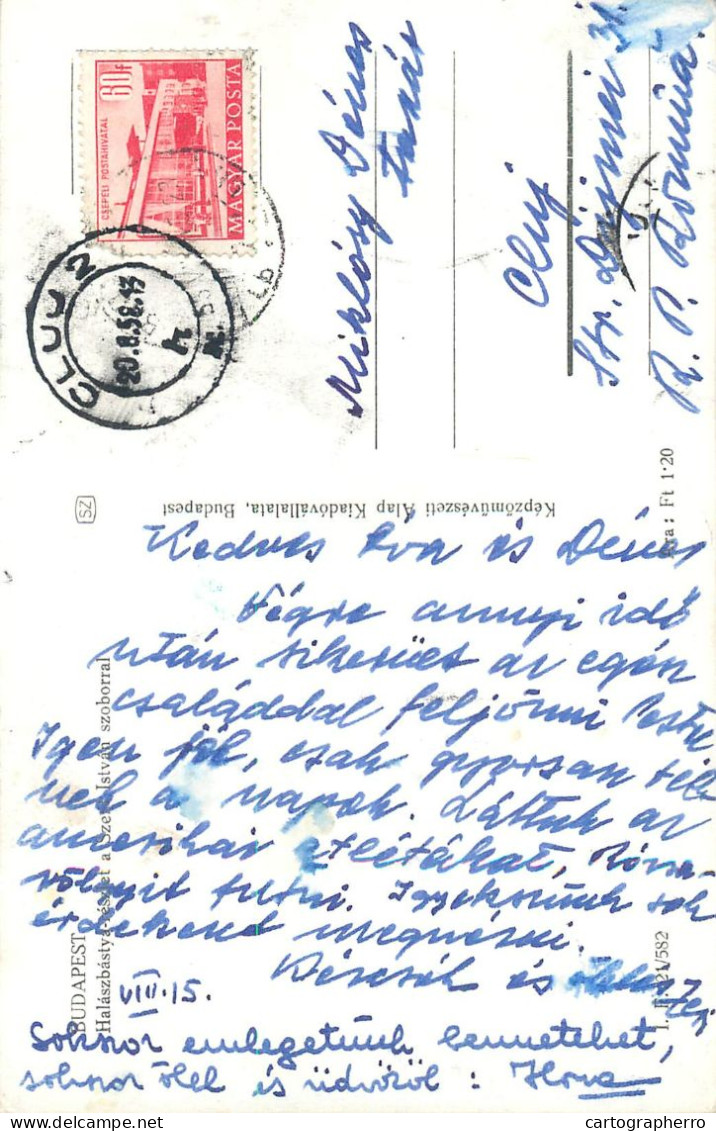 60f
CSEPELI POSTAHIVATAL
MAGYAR POSTA
CLUJ 2
20.8.58.13
Miklósy Dénes
tanár
Cluj
Str. Dejmei 31.
R. P. Romina.
SZ
Képzőművészeti Alap Kiadóvállalata, Budapest
Ára: Ft 1·20
BUDAPEST
Halászbástya-részlet a Szent István szoborral
21/582
Kedves Éva és Dénes
Végre annyi idő
után sikerült az egész
családdal feljönni Pestre
Igen jól, csak gyorsan tel-
nek a napok. Láttuk az
amerikai atlétákat, Rózsa-
völgyit futni. Igyekszünk sok
érdekeset megnézni.
Kézcsók és ölel
VIII. 15.
Sokszor emlegetünk benneteket,
sokszor ölel és üdvözöl: Ilona